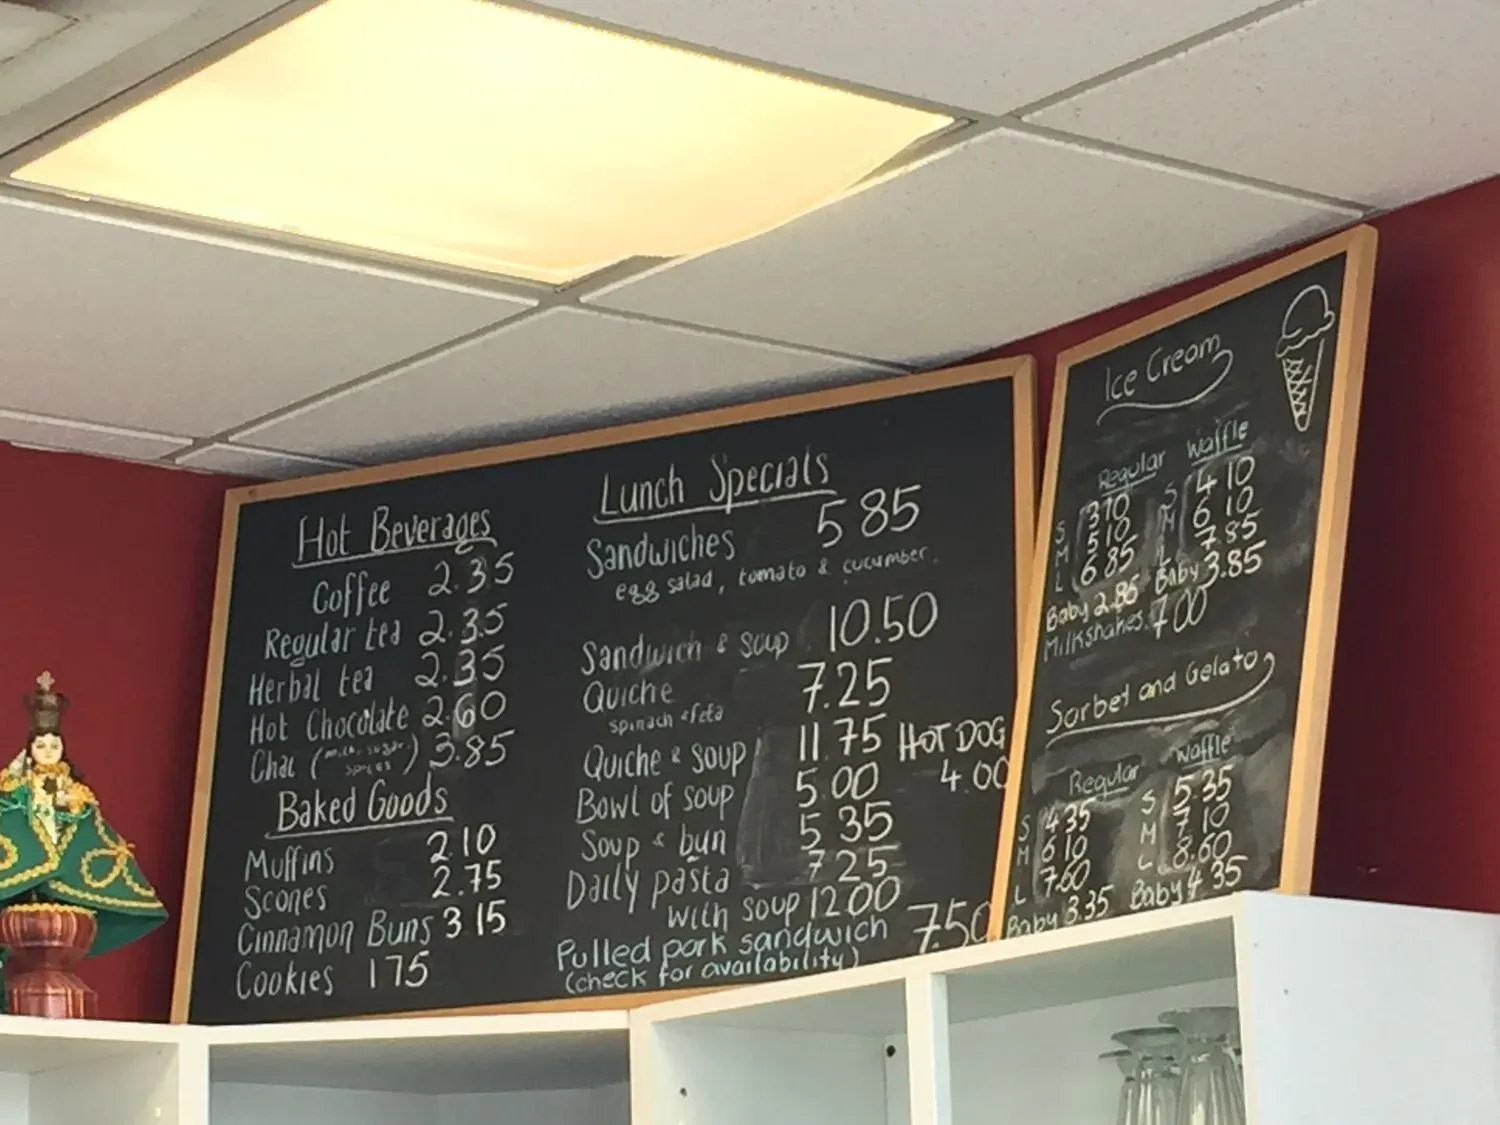 Hot Beverages
Coffee 2.35
Regular tea 2.35
Herbal tea 2.35
Hot Chocolate 2.60
Chai (milk, sugar, spices) 3.85
Baked Goods
Muffins 2.10
Scones 2.75
Cinnamon Buns 3.15
Cookies 1.75
Lunch Specials
Sandwiches 5.85
egg salad, tomato & cucumber.
Sandwich & soup 10.50
Quiche 7.25
spinach & feta
Quiche & soup 11.75
Bowl of soup 5.00
Soup & bun 5.35
Daily pasta 7.25
with soup 12.00
Pulled pork sandwich 7.50
(check for availability)
HOT DOG
4.00
Ice Cream
Regular Waffle
S 3.10 S 4.10
M 5.10 M 6.10
L 6.85 L 7.85
Baby 2.85 Baby 3.85
Milkshakes 7.00
Sorbet and Gelato
Regular Waffle
S 4.35 S 5.35
M 6.10 M 7.10
L 7.60 L 8.60
Baby 3.35 Baby 4.35